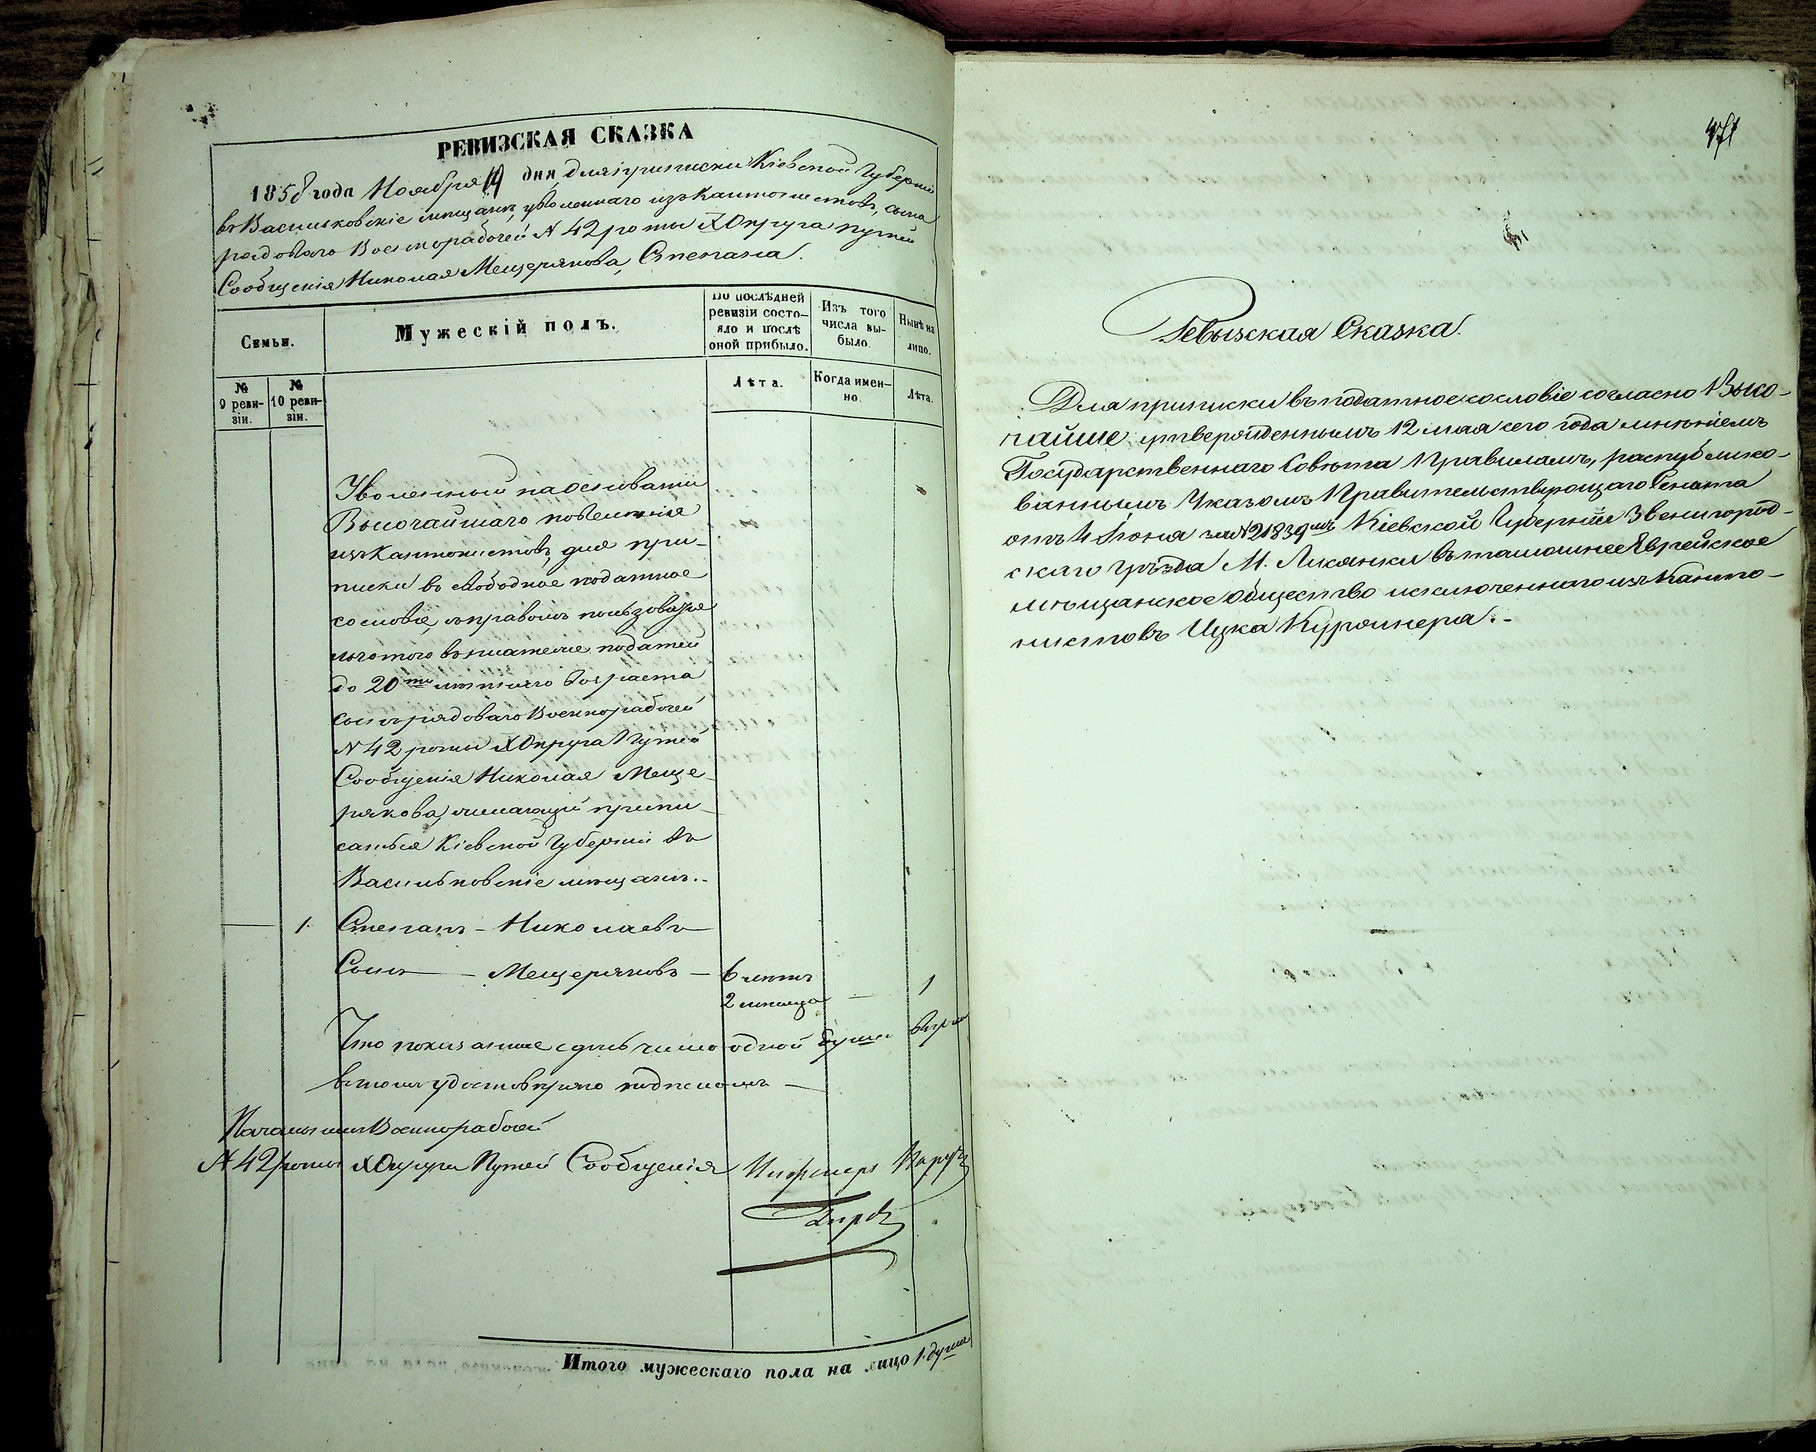 РЕВИЗСКАЯ СКАЗКА
1858 года Ноября 19 дня, для приписки Кіевской Губерніи
въ Васильковскіе мещане, уволеннаго изъ Кантонистовъ, сына
рядоваго Военнорабочей № 42 роты X Округа путей
Сообщенія Николая Мещерякова, Степана.
Семьи.
Мужескій полъ.
По послѣдней ревизіи состо-
яло и послѣ оной прибыло.
Изъ того числа вы-
было.
Нынѣ на лицо.
№ 9 реви-
зіи.
№ 10 реви-
зіи.
Лѣта.
Когда имен-
но.
Лѣта.
Уволенный на основаніи
Высочайшаго повеленія
изъ Кантонистовъ, для при-
писки въ свободное податное
сословіе, съ правомъ пользованія
льготою въ платеже податей
до 20ти летняго возраста
сынъ рядоваго Военнорабочей
№ 42 роты X Округа Путей
Сообщенія Николая Меще-
рякова, желающій припи-
саться Кіевской Губерніи въ
Васильковскіе мещане.-
1 Степанъ - Николаевъ
Сынъ - Мещеряковъ - 6 летъ
2 месяца - 1
Что показаніе здесь число одной души верно
въ томъ удостоверяю подписомъ -
Начальникъ Военнорабочей
№ 42 роты X Округа Путей Сообщенія Инженеръ
Итого мужескаго пола на лицо 1 душа
471
Ревизская Сказка.
Для приписки въ податное сословіе согласно Высо-
чайше утвержденнымъ 12 мая сего года мнѣніемъ
Государственнаго Совѣта Правиламъ, распублико-
ваннымъ Указомъ Правительствующаго Сената
отъ 4 Іюня за № 21839мъ Кіевской Губерніи Звенигород-
скаго Уѣзда М. Лисянки въ тамошнее Еврейское
мѣщанское общество исключеннаго изъ Канто-
нистовъ Ицка